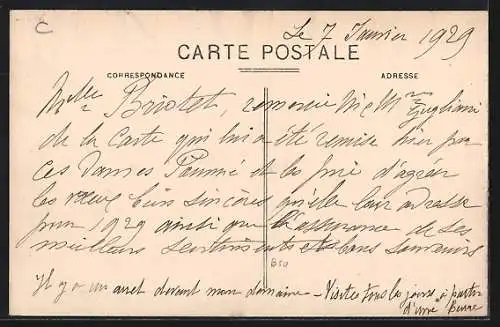 C
Le 7 Janvier 1929
CARTE POSTALE
CORRESPONDANCE
ADRESSE
Melle Bristet, remercie Mr & Mme
de la Carte qui lui a été remise hier par
ces Dames et les prie d'agréer
les vœux bien sincères qu'elle leur adresse
pour 1929 ainsi que l'assurance de ses
meilleurs sentiments et bons souvenirs
Il y a un arret devant mon domaine - Visites tous les jours à partir
d'une heure